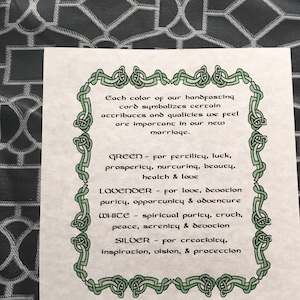 Each color of our handfasting
cord symbolizes certain
attributes and qualities we feel
are important in our new
marriage.
GREEN - for fertility, luck,
prosperity, nurturing, beauty,
health & love
LAVENDER - for love, devotion
purity, opportunity & adventure
WHITE - spiritual purity, truth,
peace, serenity & devotion
SILVER - for creativity,
inspiration, vision, & protection